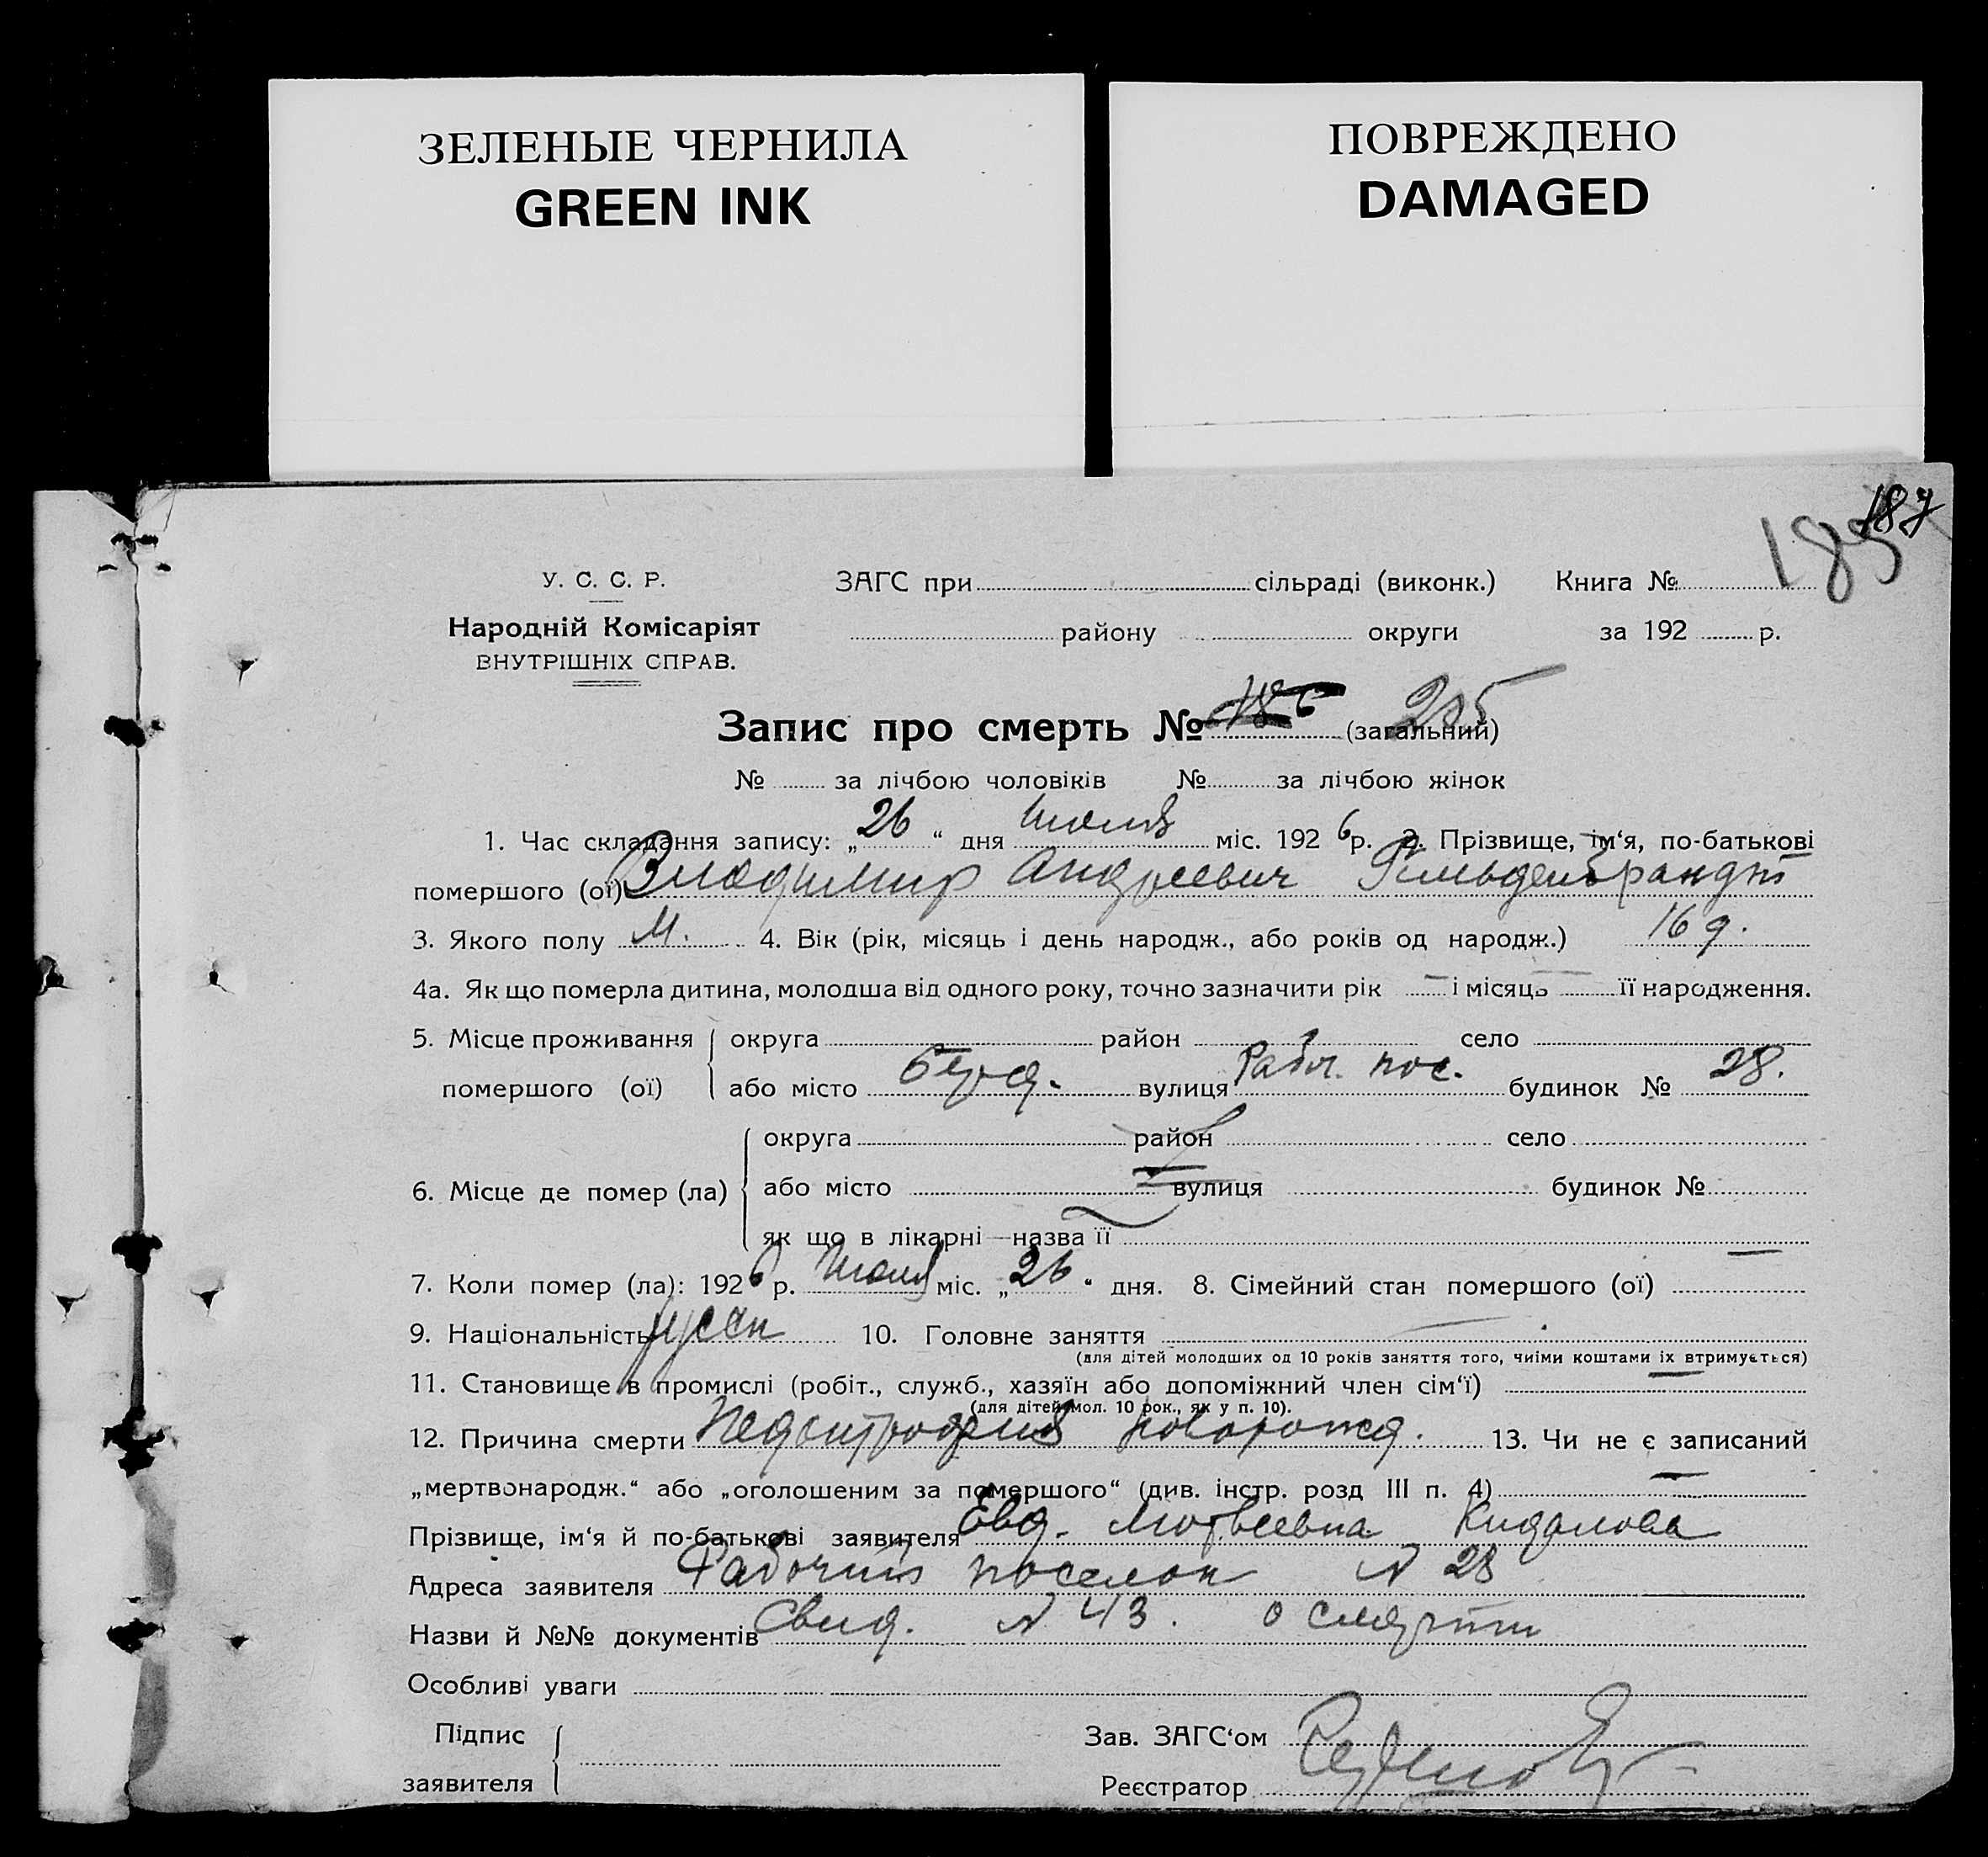 ЗЕЛЕНЫЕ ЧЕРНИЛА
GREEN INK
ПОВРЕЖДЕНО
DAMAGED
187
185
У. С. С. Р.
Народній Комісаріят
ВНУТРІШНІХ СПРАВ.
ЗАГС при сільраді (виконк.) Книга №
району округи за 192 р.
Запис про смерть № 186 (загальний) 205
№ за лічбою чоловіків № за лічбою жінок
1. Час складання запису: „26“ дня Июля міс. 1926 р. 2. Прізвище, ім‘я, по-батькові
помершого (ої) Владимир Андреевич Гильденбрандт
3. Якого полу М. 4. Вік (рік, місяць і день народж., або років од народж.) 16 д.
4а. Як що померла дитина, молодша від одного року, точно зазначити рік — і місяць — її народження.
5. Місце проживання округа район село
помершого (ої) або місто вулиця Рабоч. пос. будинок № 28.
округа район село
6. Місце де помер (ла) або місто вулиця будинок №
як що в лікарні—назва її
7. Коли помер (ла): 1926 р. Июля міс. „26“ дня. 8. Сімейний стан помершого (ої) —
9. Національність русск 10. Головне заняття —
(для дітей молодших од 10 років заняття того, чиїми коштами їх втримується)
11. Становище в промислі (робіт., служб., хазяїн або допоміжний член сім‘ї) —
(для дітей мол. 10 рок., як у п. 10).
12. Причина смерти Педатрофия новорожд. 13. Чи не є записаний
„мертвонародж.“ або „оголошеним за помершого“ (див. інстр. розд III п. 4) —
Прізвище, ім‘я й по-батькові заявителя Евд. Матвеевна Кидалова
Адреса заявителя Рабочий поселок № 28
Назви й №№ документів Свид. № 43. о смерти
Особливі уваги
Підпис
заявителя
Зав. ЗАГС‘ом
Реєстратор